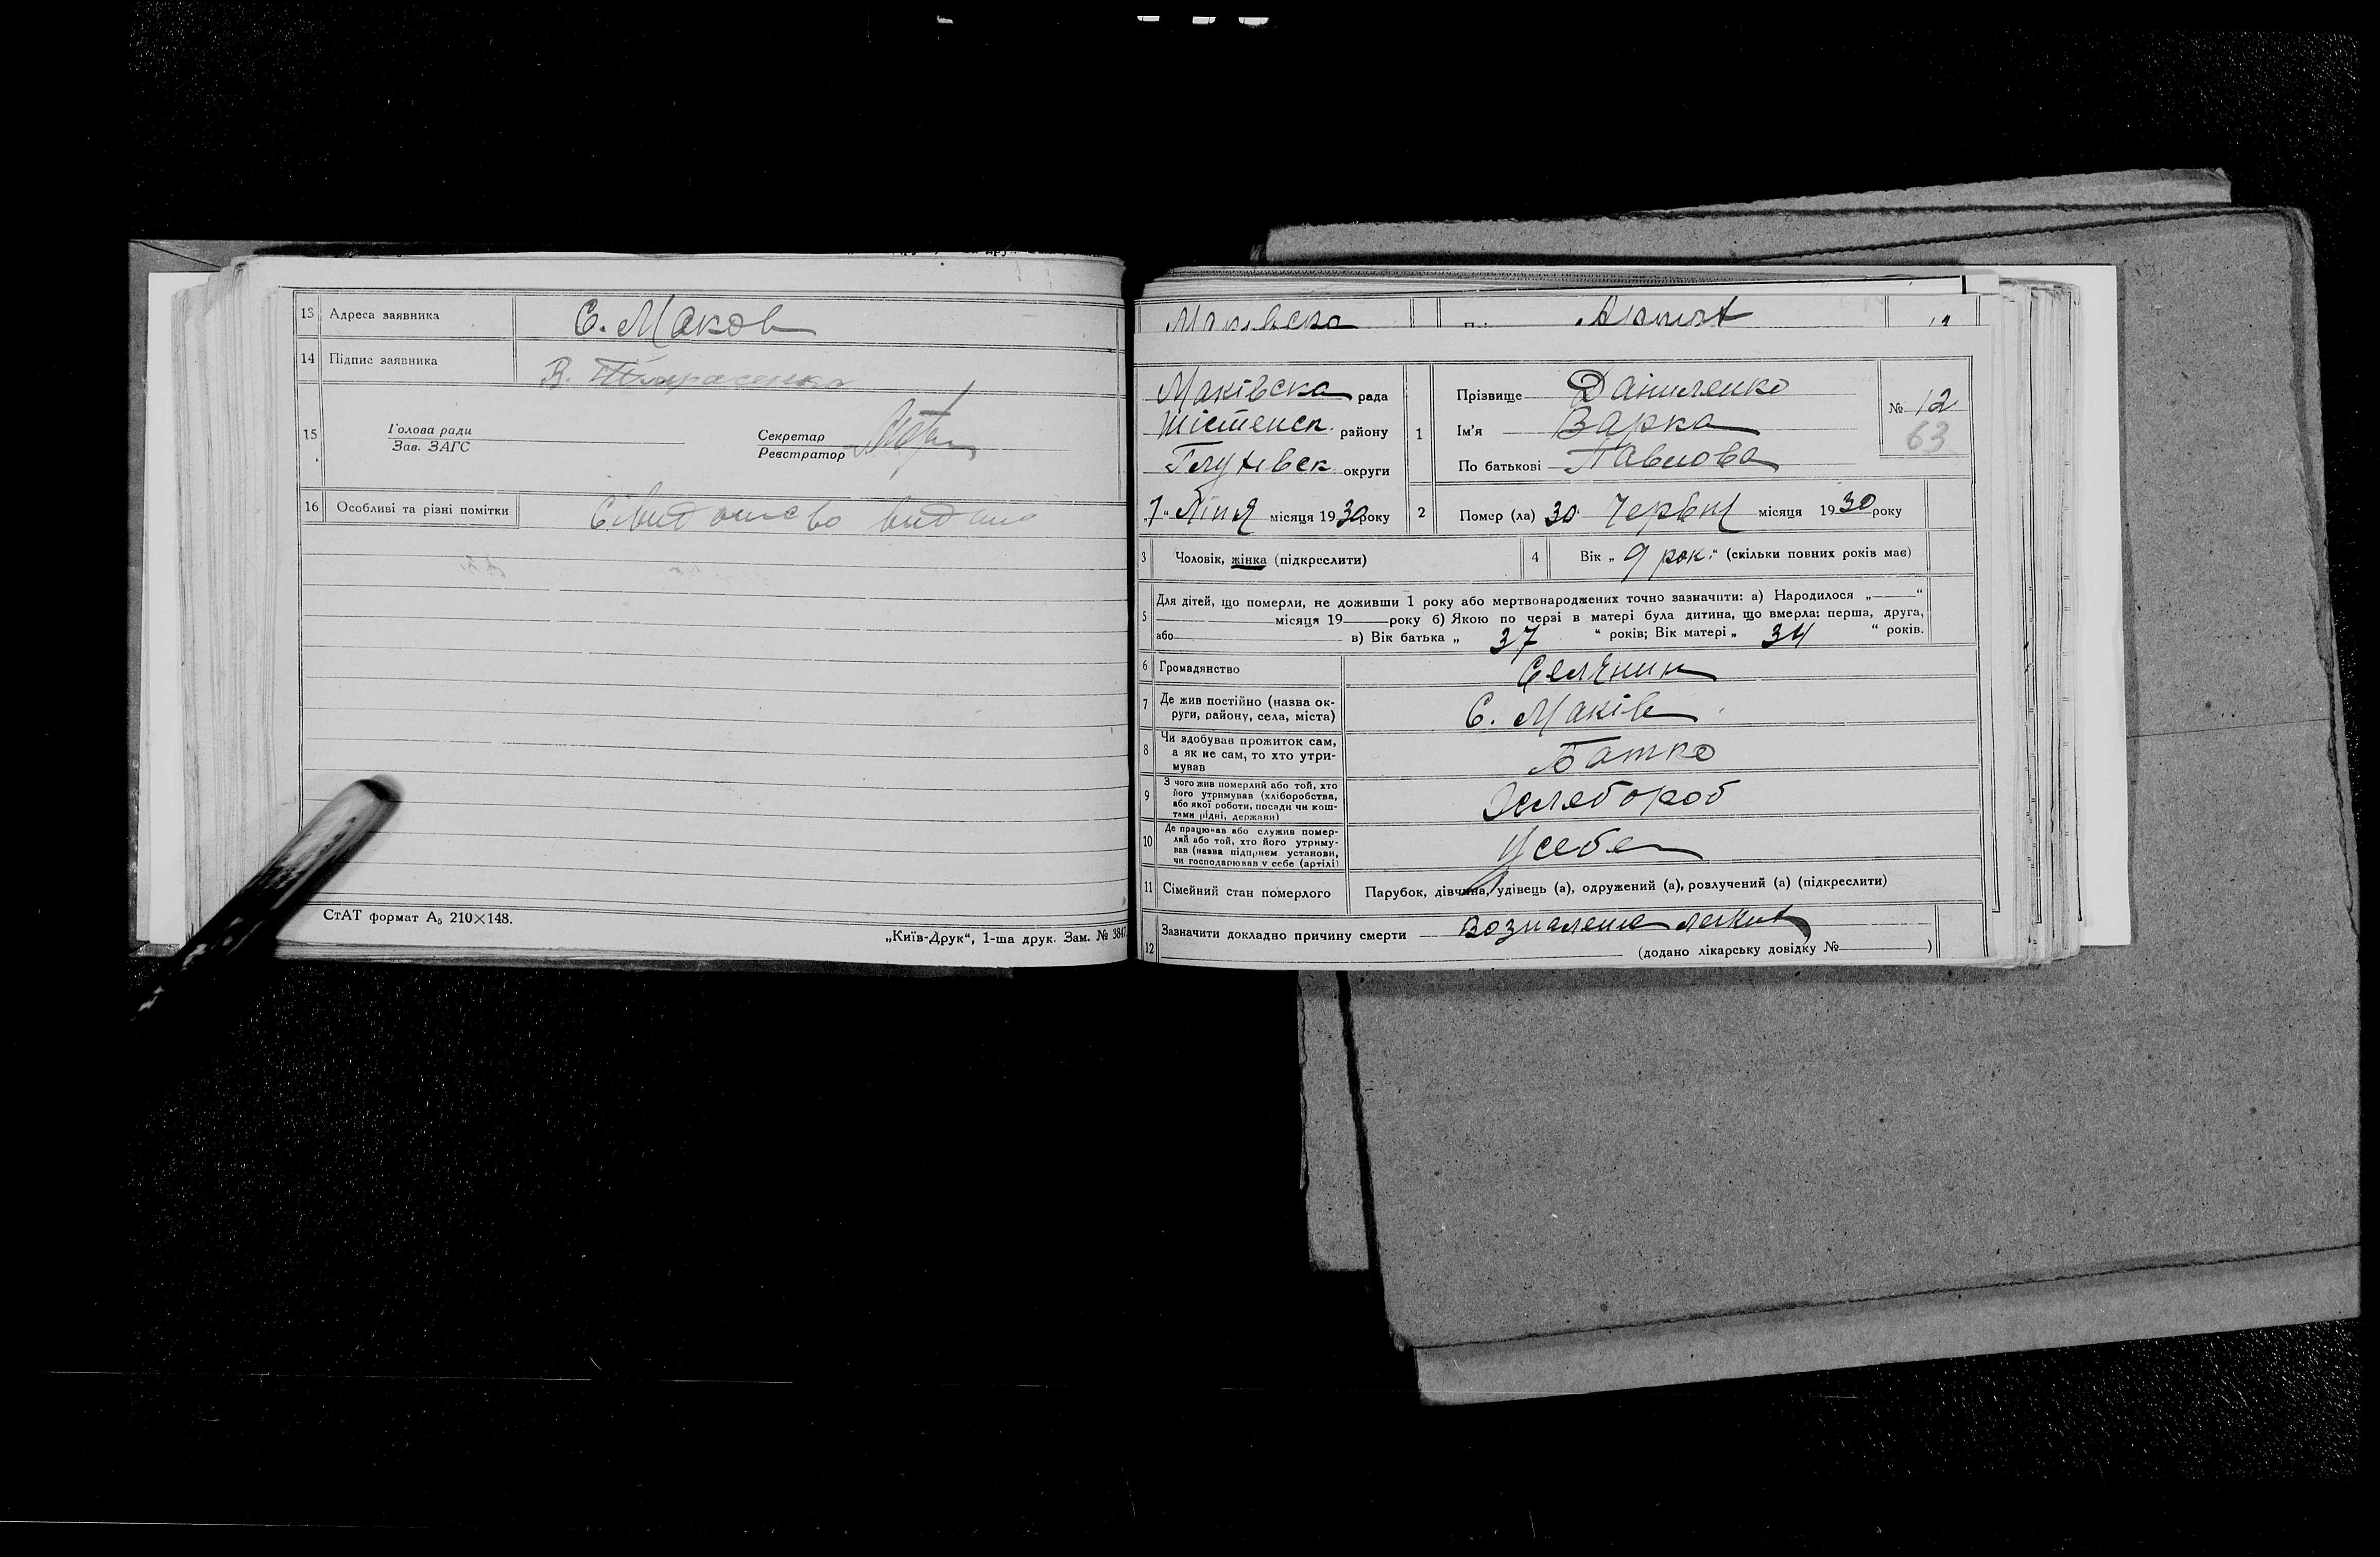 13 Адреса заявника С. Маков
14 Підпис заявника В. Тарасенко
15 Голова ради
Зав. ЗАГС
Секретар
Реєстратор
16 Особливі та різні помітки Свидоцтво видано
СтАТ формат А₅ 210×148.
„Київ-Друк“, 1-ша друк. Зам. № 3847
Маківска
Маківска рада
Шістенск. району
Глухівск округи
„1“ Ліпня місяця 1930 року
1 Прізвище Даниленко
Ім'я Варка
По батькові Павлова
№ 12
63
2 Помер (ла) 30 Червня місяця 1930 року
3 Чоловік, жінка (підкреслити)
4 Вік „9 рок.“ (скільки повних років має)
5 Для дітей, що померли, не доживши 1 року або мертвонароджених точно зазначити: а) Народилося „—“
місяця 19— року б) Якою по черзі в матері була дитина, що вмерла: перша, друга,
або в) Вік батька „37“ років; Вік матері „34“ років.
6 Громадянство Селянин
7 Де жив постійно (назва ок-
руги, району, села, міста) С. Маків
8 Чи здобував прожиток сам,
а як не сам, то хто утри-
мував Батко
9 З чого жив померлий або той, хто
його утримував (хліборобства,
або якої роботи, посади чи кош-
тами рідні, держави) Хлебороб
10 Де працював або служив помер-
лий або той, хто його утриму-
вав (назва підприєм установи,
чи господарював у себе (артілі) Усебе
11 Сімейний стан померлого Парубок, дівчина, удівець (а), одружений (а), розлучений (а) (підкреслити)
12 Зазначити докладно причину смерти Возпаление легких
(додано лікарську довідку № )